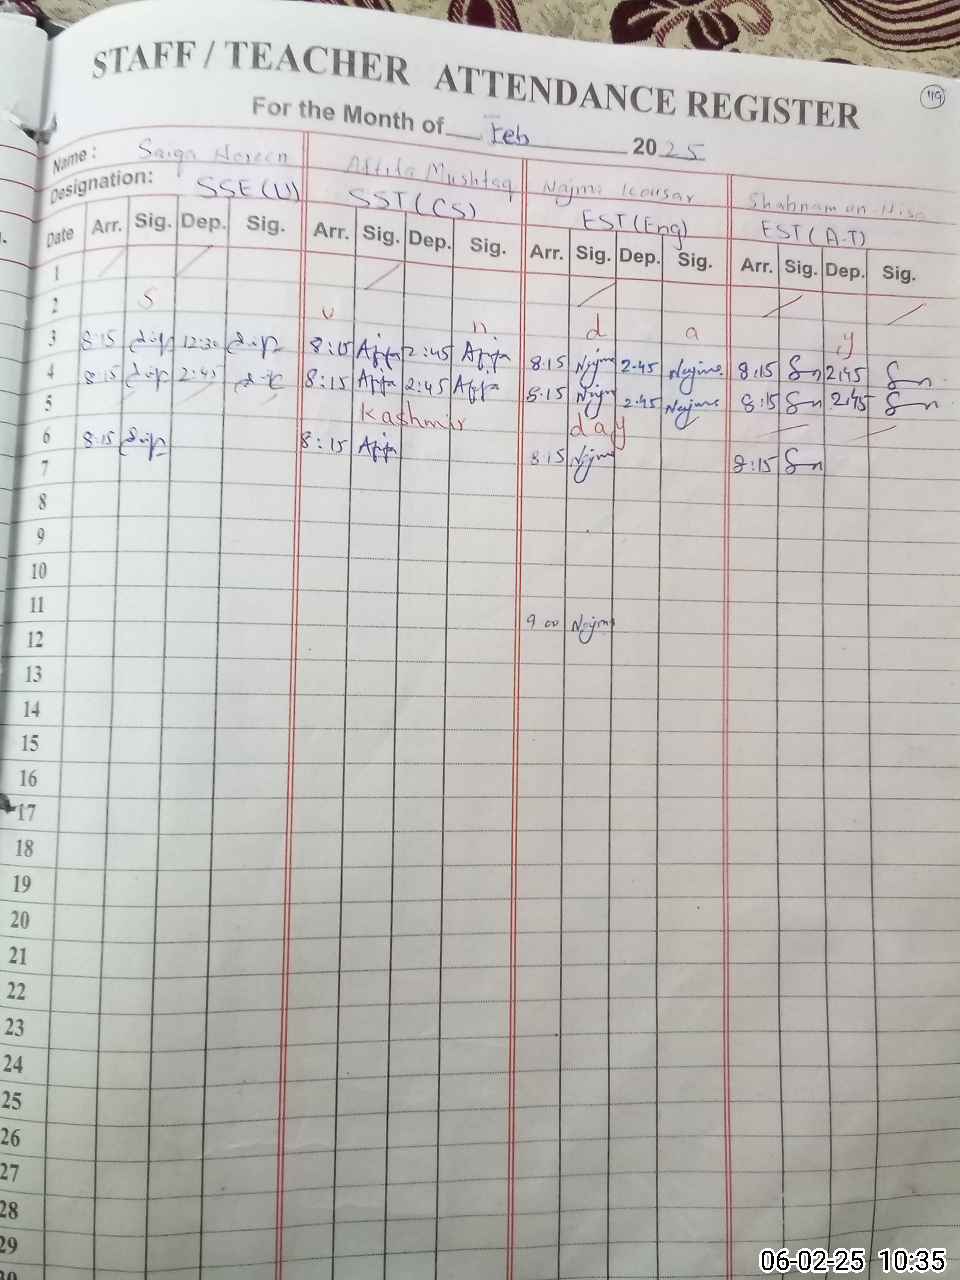 119
STAFF / TEACHER ATTENDANCE REGISTER
For the Month of Feb 2025
Name : Saiqa Noreen Mushtaq Najma Kousar Shabnam un Nisa
Designation: SSE(U) SST(CS) EST(Eng) EST(A-T)
Date Arr. Sig. Dep. Sig. Arr. Sig. Dep. Sig. Arr. Sig. Dep. Sig. Arr. Sig. Dep. Sig.
1
2 S u n d a y
3 8:15 12:30 8:15 2:45 8:15 Najma 2.45 Najma 8:15 Sn 2:45 Sn
4 8:15 2:45 8:15 2:45 8:15 Najma 2.45 Najma 8:15 Sn 2:45 Sn
5 Kashmir day
6 8:15 8:15 8:15 Najma 8:15 Sn
7
8
9
10
11 9 00 Najma
12
13
14
15
16
17
18
19
20
21
22
23
24
25
26
27
28
29
06-02-25 10:35